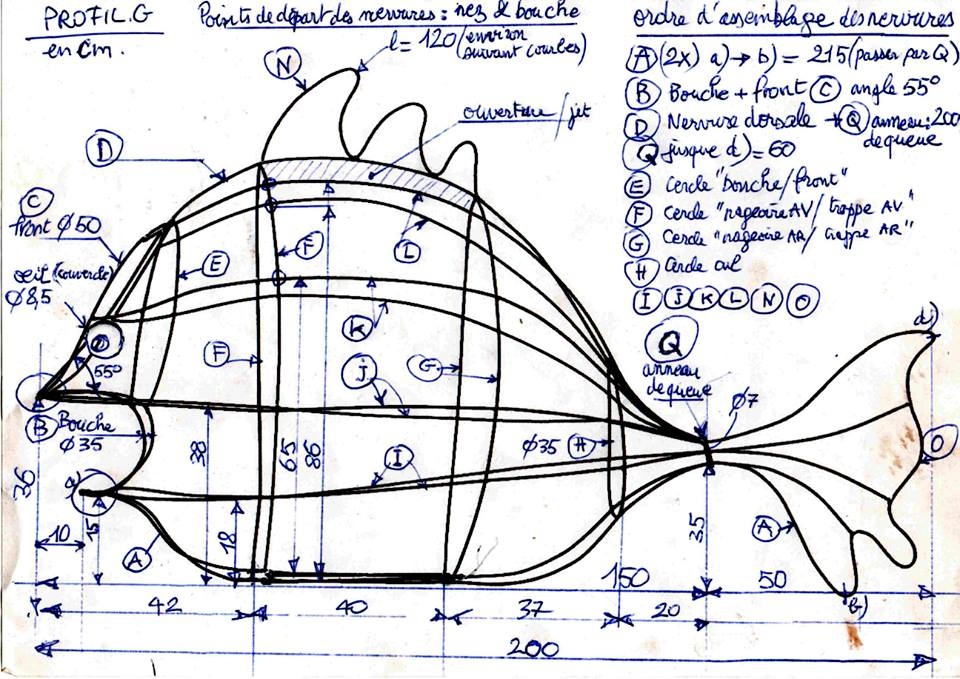 PROFIL.G
en cm.
Points de départ des nervures : nez & bouche
l = 120 (environ
suivant courbes)
N
ouverture/jet
D
C
front Ø 50
œil (couvercle)
Ø 8,5
E
F
L
K
F
G
J
55°
B
Bouche
Ø 35
a)
I
A
Ø 35 H
36
10
15
38
18
65
86
35
ordre d'assemblage des nervures
A (2x) a) → b) = 215 (passer par Q)
B Bouche + front C angle 55°
D Nervure dorsale → Q anneau: 200
de queue
Q jusque d) = 60
E Cercle "bouche/front"
F Cercle "nageoire AV/ trappe AV"
G Cercle "nageoire AR/ trappe AR"
H Cercle cul
I J K L N O
Q
anneau
de queue
Ø 7
d)
O
A
b)
150
50
42
40
37
20
200